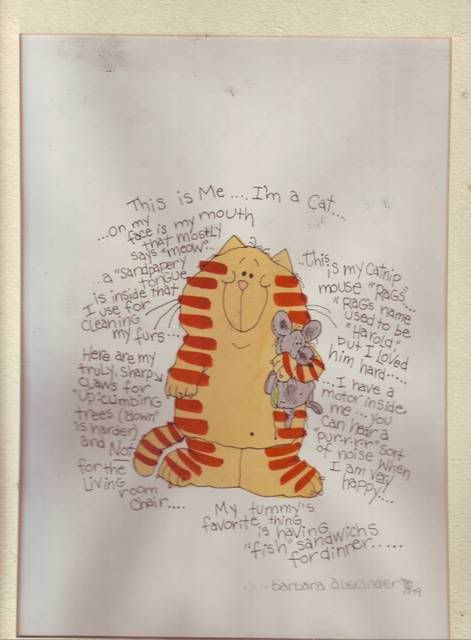 This is Me.... I'm a Cat...
...on my
face is my mouth
that mostly
says "meow"...
...a "sandpapery
tongue
is inside that
I use for
cleaning
my furs...
Here are my
truly, sharp
claws for
"up"-climbing
trees (down"
is harder)
and Not
for the
Living
room
Chair....
..This
is my Catnip
mouse "Rags"...
"Rags name
used to be
"Harold"
but I loved
him hard....
...I have a
motor inside
me...you
can hear a
"purrrr" sort
of noise when
I am very
happy....
My tummy's
favorite thing
is having
"fish" sandwichs
for dinner.....
....barbara alexander
1979